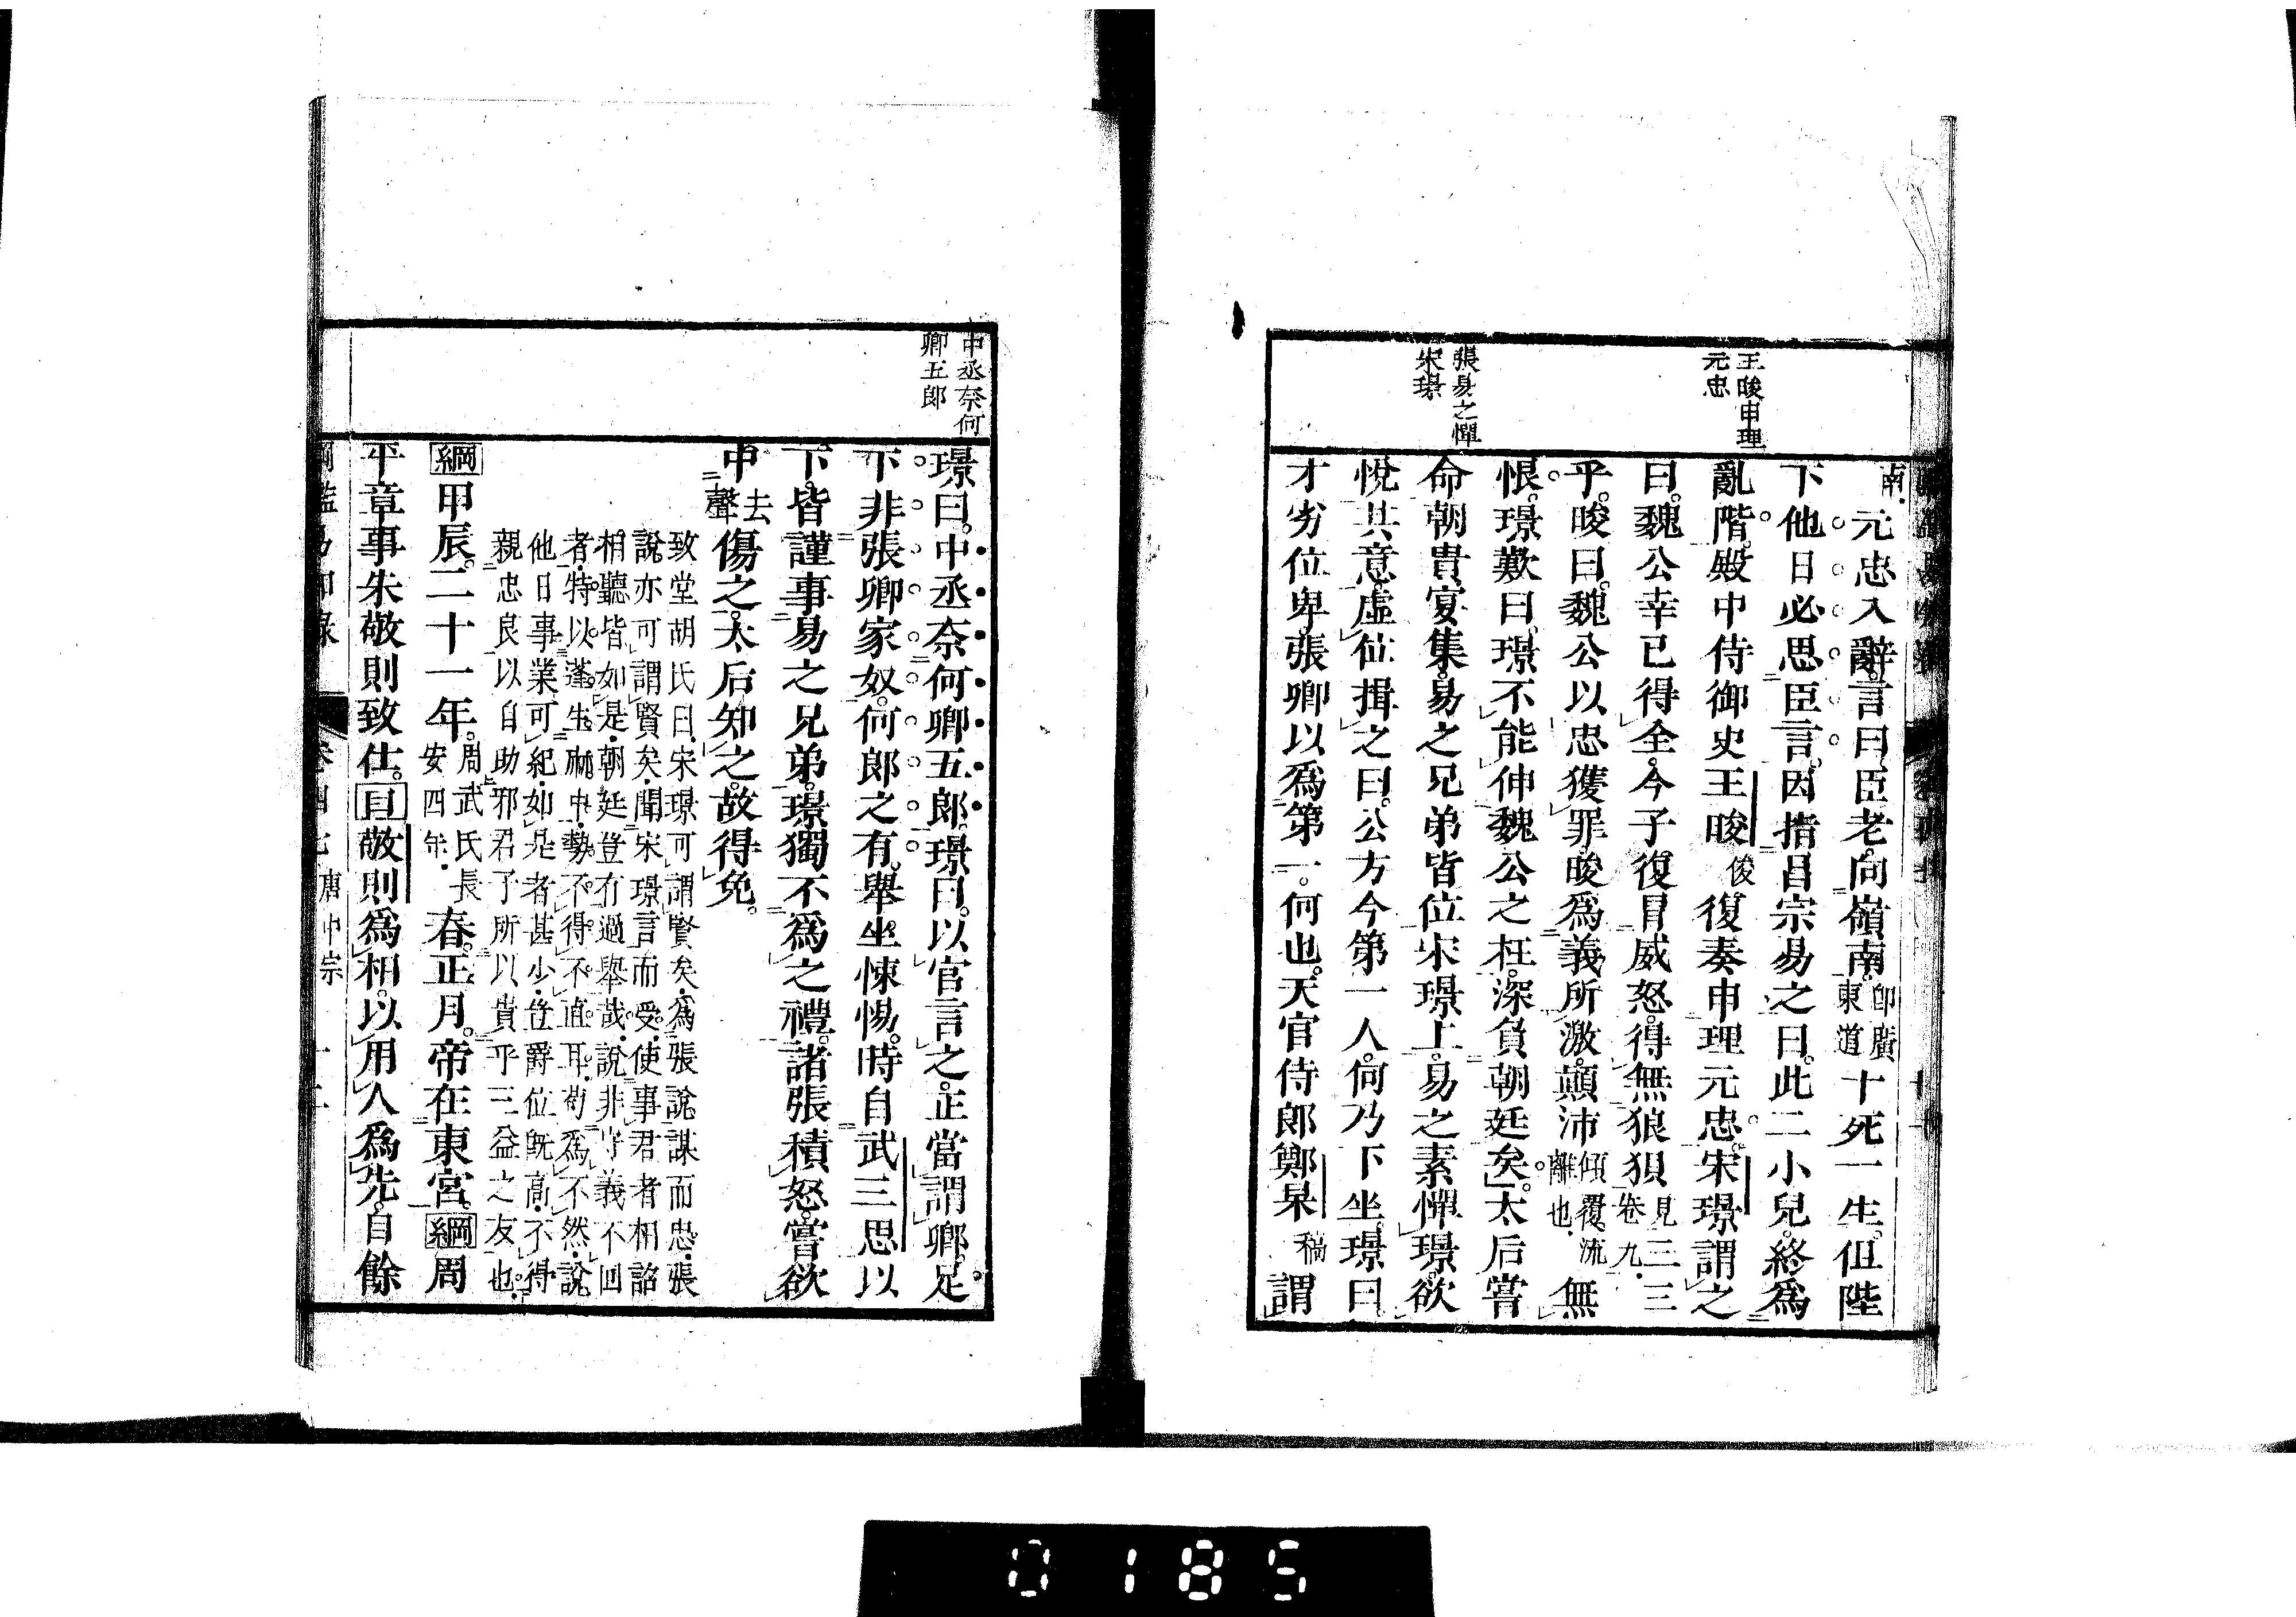 王晙申理
元忠
張易之憚
宋璟
南元忠入辭言曰臣老向嶺南即廣東道十死一生但陛
下他日必思臣言因指昌宗易之曰此二小兒終爲
亂階殿中侍御史王晙俊復奏申理元忠宋璟謂之
曰魏公幸已得全今子復冒威怒得無狼狽見三三卷九
乎晙曰魏公以忠獲罪晙爲義所激顛沛傾覆流離也無
恨璟歎曰璟不能伸魏公之枉深負朝廷矣太后嘗
命朝貴宴集易之兄弟皆位宋璟上易之素憚璟欲
悅其意虛位揖之曰公方今第一人何乃下坐璟曰
才劣位卑張卿以爲第一何也天官侍郎鄭杲稿謂
中丞奈何
卿五郎
璟曰中丞奈何卿五郎璟曰以官言之正當謂卿足
下非張卿家奴何郎之有舉坐悚惕時自武三思以
下皆謹事易之兄弟璟獨不爲之禮諸張積怒嘗欲
中去聲傷之太后知之故得免
致堂胡氏曰宋璟可謂賢矣爲張說謀而忠張
說亦可謂賢矣聞宋璟言而受使事君者相詔
相聽皆如是朝廷豈有過舉哉說非守義不回
者特以蓬生麻中勢不得不直耳苟爲不然說
他日事業可紀如是者甚少豈爵位既高不得
親忠良以自助邪君子所以貴乎三益之友也
綱甲辰二十一年周武氏長安四年春正月帝在東宮綱周
平章事朱敬則致仕目敬則爲相以用人爲先自餘
綱鑑易知錄 卷四七 唐中宗
0185